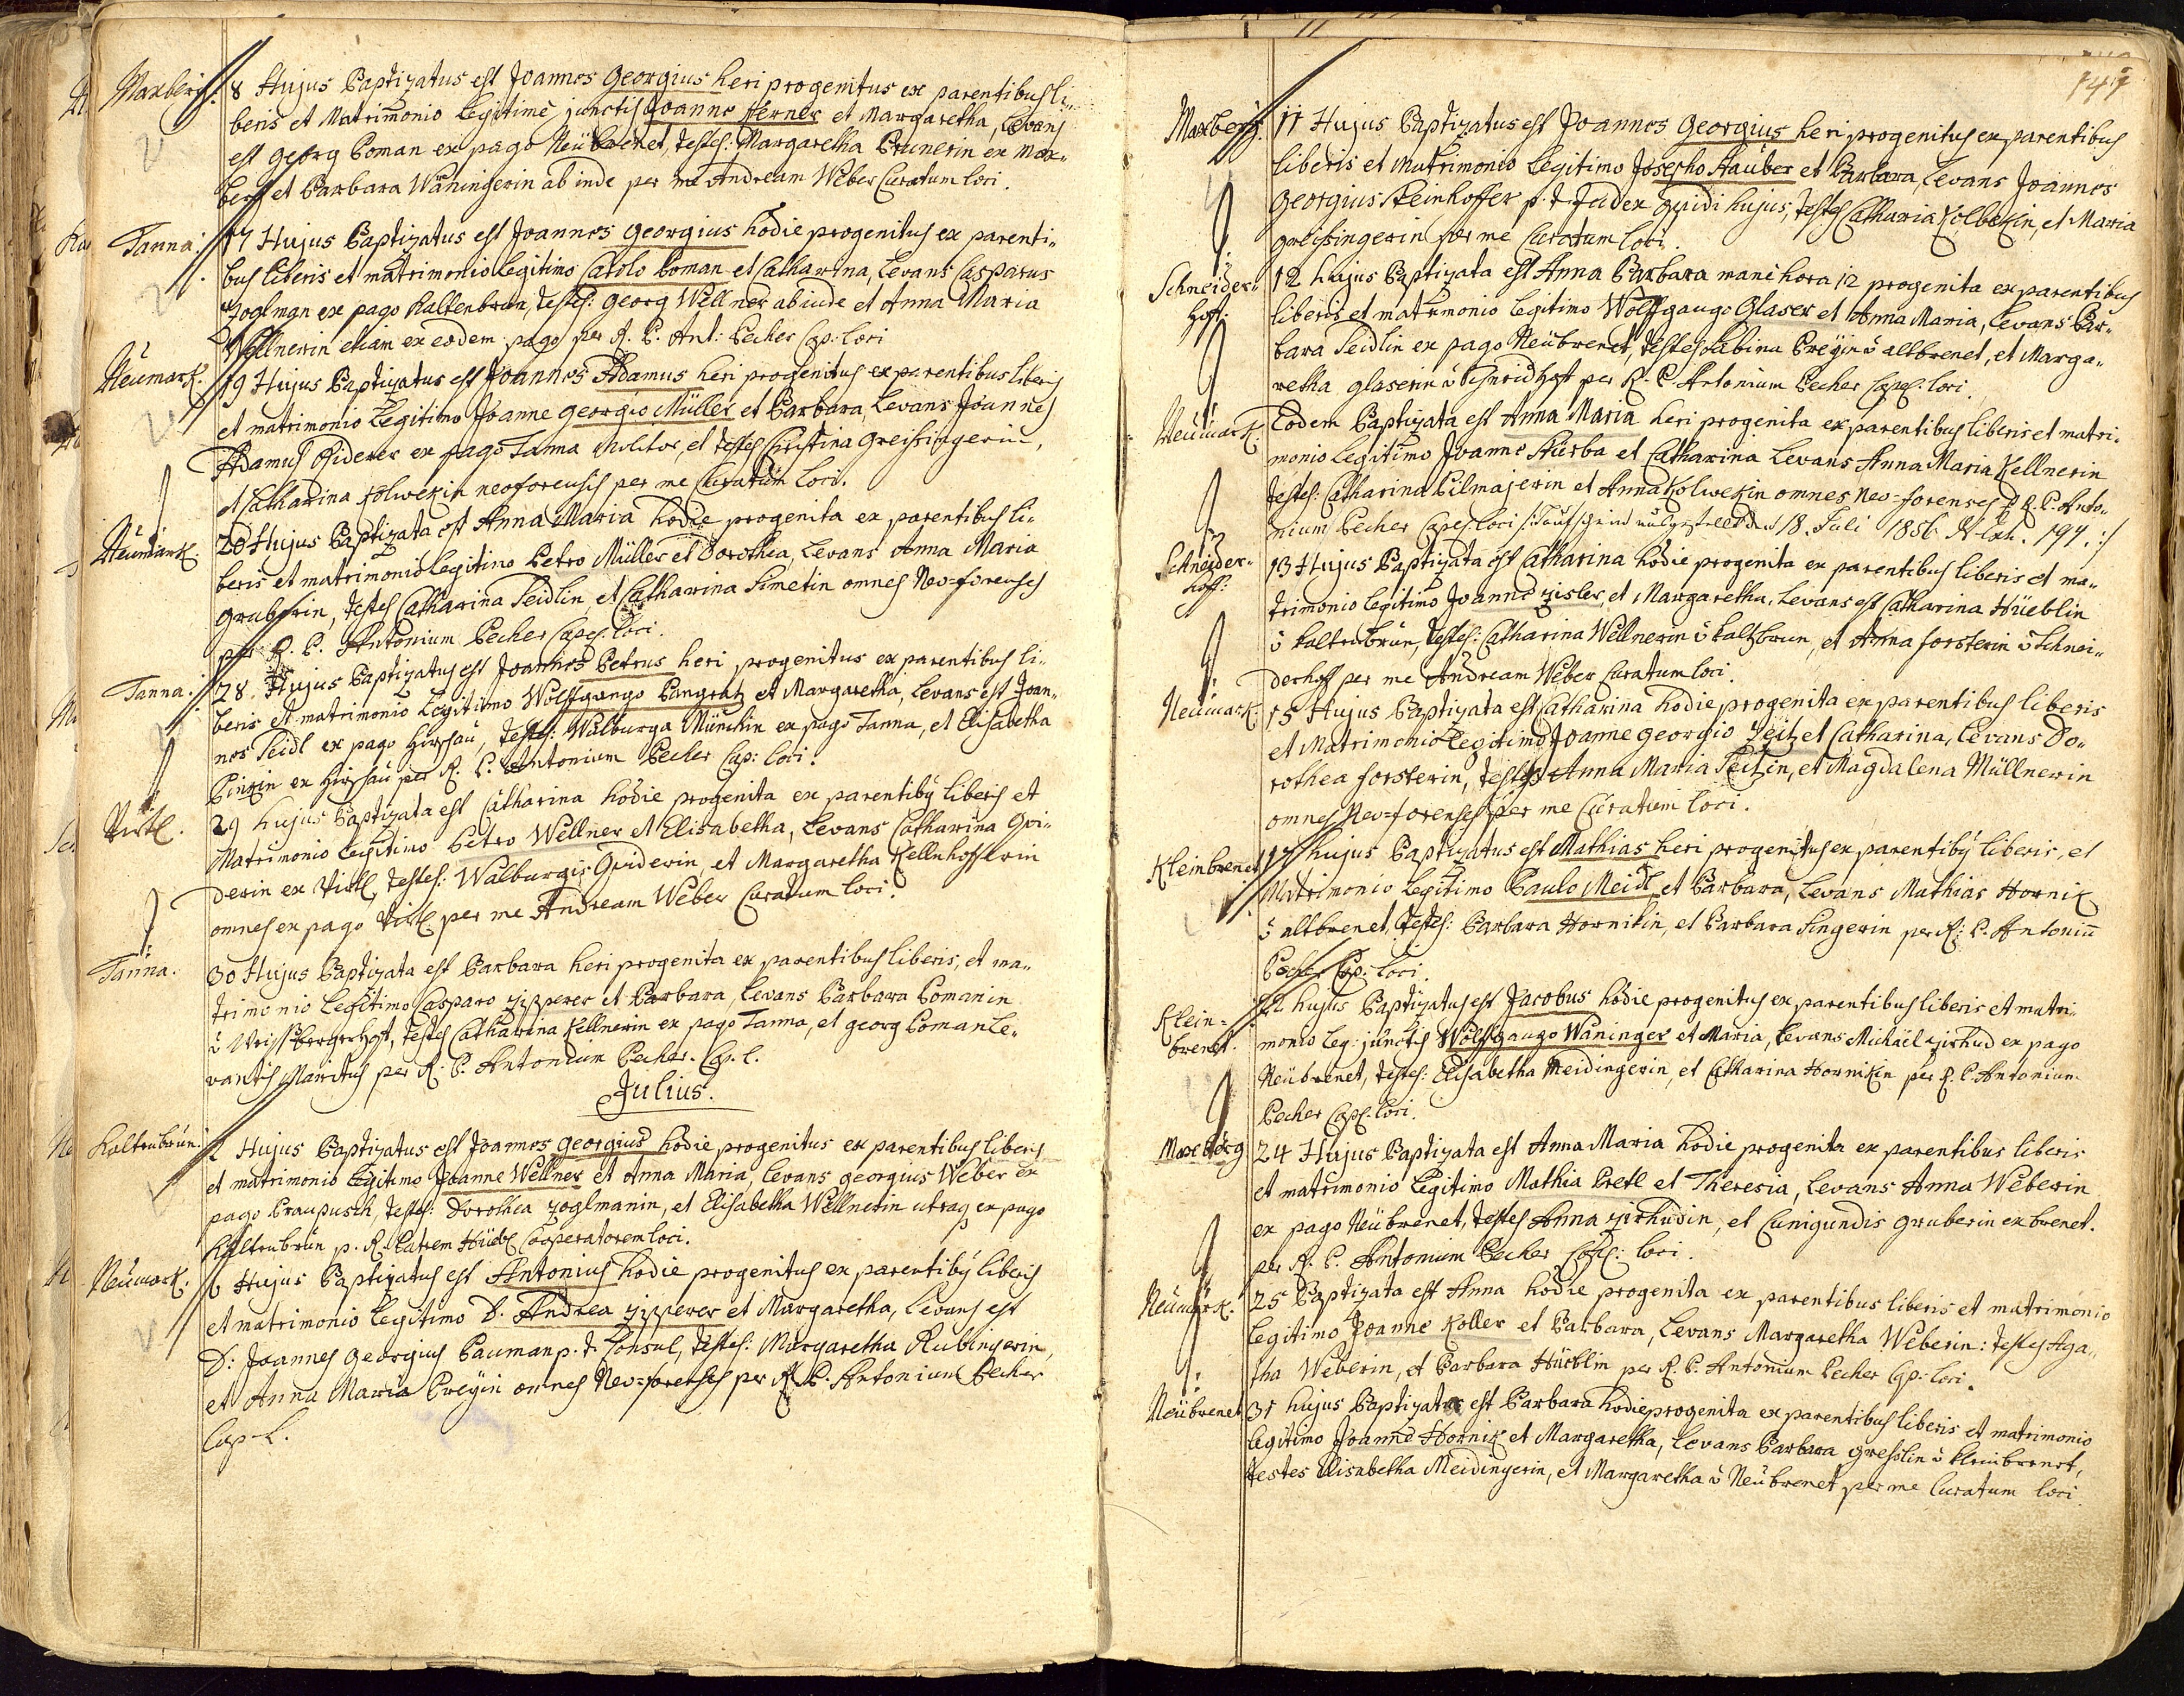 Maxberg. 8 Hujus Baptizatus est Joannes Georgius heri progenitus ex parentibus li-
beris et Matrimonio Legitimè junctis Joanne Ferner et Margaretha, Levans
est Georg Poman ex pago Neübrenet, testes: Margaretha Prunerin ex Max-
berg et Barbara Wäningerin ab inde per me Andream Weber Curatum loci.
Tanna: 17 Hujus Baptizatus est Joannes Georgius hodie progenitus ex parenti-
bus liberis et matrimonio legitimo Carolo Poman et Catharina, Levans Casparus
Zoglman ex pago Kaltenbrun, testes: Georg Wellner abinde et Anna Maria
Wellnerin etiam ex eodem pago per R. P. Ant: Pecher Cap: loci
Neümark. 19 Hujus Baptizatus est Joannes Adamus heri progenitus ex parentibus liberis
et matrimonio Legitimo Joanne Georgio Müller et Barbara, Levans Joannes
Adamus ex pago Tanna Molitor, et testes Christina Greissingerin,
et Catharina Kolwekin neoforensis per me Curatum Loci.
Neümark. 20 Hujus Baptizata est Anna Maria hodie progenita ex parentibus li-
beris et matrimonio legitimo Petro Müller et Dorothea, Levans Anna Maria
Gruberin, testes Catharina Seidlin, et Catharina Simetin omnes Neo-forenses
per R. P. Antonium Pecher Capel: loci.
Tanna: 28. Hujus Baptizatus est Joannes Petrus heri progenitus ex parentibus li-
beris et matrimonio Legitimo Wolffgango Pangratz et Margaretha, Levans est Joan-
nes Seidl ex pago Hirschau, testes: Walburga Münchin ex pago Tanna, et Elisabetha
ex Hirschau per R. P. Antonium Pecher Cap: loci.
Virtl. 29 hujus Baptizata est Catharina hodie progenita ex parentibq liberis et
Matrimonio Legitimo Petro Wellner et Elisabetha, Levans Catharina Gvi-
derin ex Virtl, testes: Walburgis Gviderin, et Margaretha Kellnhofferin
omnes ex pago Virtl per me Andream Weber Curatum loci.
Tanna. 30 Hujus Baptizata est Barbara heri progenita ex parentibus liberis, et ma-
trimonio Legitimo Casparo Zipperer et Barbara, Levans Barbara Pomanin
testes Catharina Kellnerin ex pago Tanna, et Georg Poman Le-
vantis Maritus per R. P. Antonium Pecher. Cap. L.
Julius.
Kaltenbrün. 2 Hujus Baptizatus est Joannes Georgius hodie progenitus ex parentibus liberis
et matrimonio Legitimo Joanne Wellner et Anna Maria, Levans Georgius Weber ex
pago Braupusch, testes: Dorothea Zoglmanin, et Elisabetha Wellnerin utraq ex pago
Kaltenbrün p. R. Patrem Hüebl Cooperatorem loci.
Neümark. 6 Hujus Baptizatus est Antonius hodie progenitus ex parentibq liberis
et matrimonio Legitimo D. Andrea Zipperer et Margaretha, Levans est
D: Joannes Georgius Pauman p. t. Consul, testes: Margaretha Rubingerin,
et Anna Maria Preyin omnes Neo-forenses per R. P. Antonium Pecher
Cap. L.
147
Maxberg. 11 Hujus Baptizatus est Joannes Georgius heri progenitus ex parentibus
liberis et Matrimonio Legitimo Josepho Stauber et Barbara, Levans Joannes
Georgius Steinhoffer p. t. Judex hujus, testes Catharia Kolbekin, et Maria
Greissingerin per me Curatum loci.
Schneider-
hoff: 12 hujus Baptizata est Anna Barbara manè hora 12 progenita ex parentibus
liberis et matrimonio Legitimo Wolffgango Glaser et Anna Maria, Levans Bar-
bara Seidlin ex pago Neübrenet, testes Sabina Preyin ò altbrenet, et Marga-
retha Glaserin ò Schneidhoff per R. P. Antonium Pecher Capel: loci.
Neümark. Eodem Baptizata est Anna Maria heri progenita ex parentibus liberis et matri-
monio Legitimo Joanne Hürba et Catharina Levans Anna Maria Kellnerin
testes: Catharina Pilmajerin et Anna Kolwekin omnes Neo-forenses p R. P. Anto-
nium Pecher Capel: loci /: Taufschein ausgestellt den 18. Juli 1856 N. Exh. 197. :/
Schneider-
hoff: 13 Hujus Baptizata est Catharina hodie progenita ex parentibus liberis et ma-
trimonio Legitimo Joanne Zisler, et Margaretha, Levans est Catharina Hüeblin
ò Kaltenbrün, testes: Catharina Wellnerin ò Kaltbrun, et Anna Forsterin ò Schnei-
derhoff per me Andream Weber Curatum loci.
Neümark. 15 Hujus Baptizata est Catharina hodie progenita ex parentibus liberis
et Matrimonio Legitimo Joanne Georgio Zeitz et Catharina, Levans Do-
rothea Forsterin, testes Anna Maria Seitzin, et Magdalena Müllnerin
omnes Neo-forenses per me Curatum loci.
Kleinbrenet 17 hujus Baptizatus est Mathias heri progenitus ex parentibq liberis, et
Matrimonio Legitimo Paulo Meidl, et Barbara, Levans Mathias Hornik
ò altbrenet, testes: Barbara Hornikin, et Barbara Singerin per R: P. Antoniu
Pecher Cap: loci.
Klein-
brenet. 22 hujus Baptizatus est Jacobus hodie progenitus ex parentibus liberis et matri-
monio Leg: junctis Wolffgango Wäninger et Maria, Levans Michael Zirhud ex pago
Neübrenet, testes: Elisabetha Meidingerin, et Catharina Hornikin per R. P. Antonium
Pecher Capel. loci.
Maxberg 24 Hujus Baptizata est Anna Maria hodie progenita ex parentibus liberis
et matrimonio Legitimo Mathia Pretl et Theresia, Levans Anna Weberin
ex pago Neübrenet, testes Anna Zirhudin, et Cunigundis Gruberin ex brenet.
per R. P. Antonium Pecher Capel: loci.
Neümark. 25 Baptizata est Anna hodie progenita ex parentibus liberis et matrimonio
Legitimo Joanne Koller et Barbara, Levans Margaretha Weberin: testes Aga-
tha Weberin, et Barbara Hüeblin per R. P. Antonium Pecher Cap: loci.
Neübrenet 31 hujus Baptizata est Barbara hodie progenita ex parentibus liberis et matrimonio
legitimo Joanne Hornik et Margaretha, Levans Barbara Gresslin ò Kleinbrenet,
testes Elisabetha Meidingerin, et Margaretha ò Neübrenet per me Curatum loci.